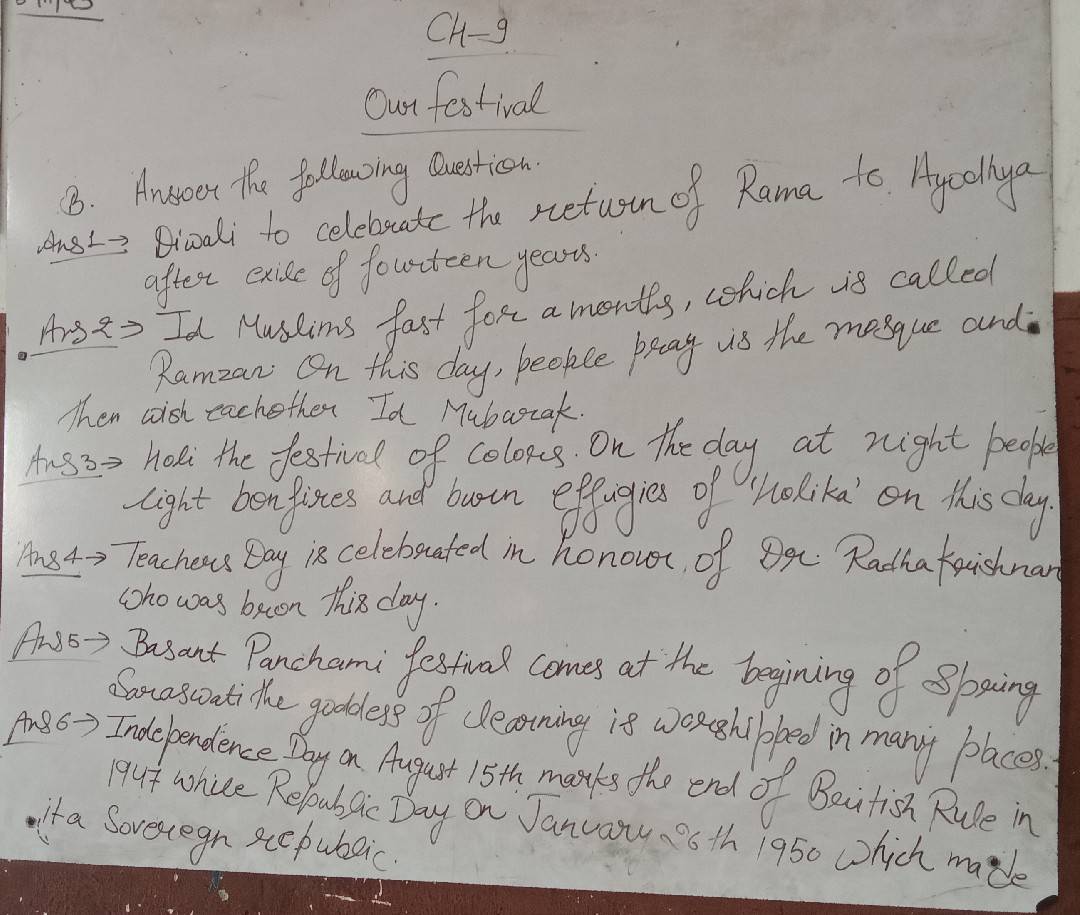 CH-9
Our festival
B. Answer the following Question.
Ans1→ Diwali to celebrate the return of Rama to Ayodhya
after exile of fourteen years.
Ans2→ Id Muslims fast for a months, which is called
Ramzan. On this day, people pray is the mosque and
Then wish eachother Id Mubarak.
Ans3→ Holi the festival of colors. On the day at night people
light bonfires and burn effugies of 'Holika' on this day.
Ans4→ Teachers Day is celebrated in honour of Dr. Radhakrishnan
who was bron this day.
Ans5→ Basant Panchami festival comes at the begining of Spring
Saraswati the goddess of learning is worshipped in many places.
Ans6→ Independence Day on August 15th marks the end of British Rule in
1947 while Republic Day On January 26th 1950 which made
it a Soveregn republic.